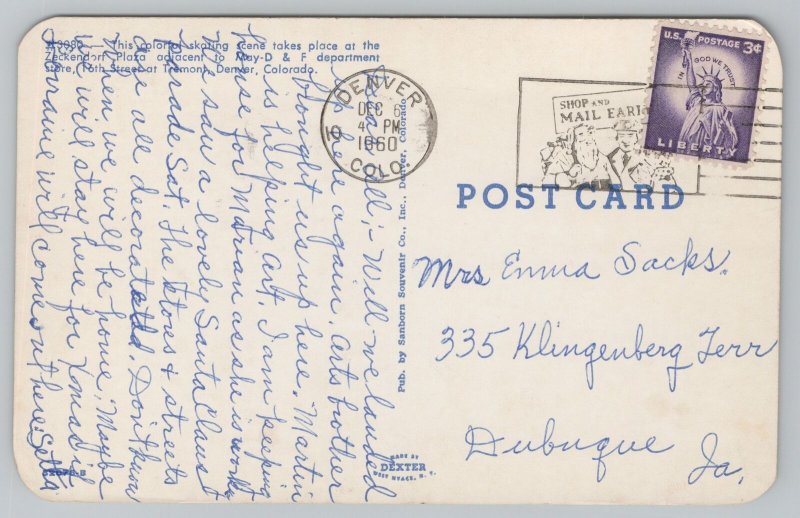 A3080 — This colorful skating scene takes place at the
Zeckendorf Plaza adjacent to May-D & F department
store, 16th Street at Tremont, Denver, Colorado.
Dear All:- Well we landed
out here again. Arts brother
brought us up here. Martin
is helping Art. I am keeping
house for Marian as she is working
We saw a lovely Santa Claus
Parade Sat. The stores & streets
are all decorated. Don't know
when we will be home. Maybe
we will stay here for Xmas if
Lorraine will come out here. Setta
Pub. by Sanborn Souvenir Co., Inc., Denver, Colorado
MADE BY
DEXTER
WEST NYACK, N. Y.
DENVER
DEC 6
4 PM
1960
COLO.
10
SHOP AND
MAIL EARLY
U.S. POSTAGE 3¢
IN GOD WE TRUST
LIBERTY
POST CARD
Mrs Emma Sacks.
335 Klingenberg Terr
Dubuque
Ia.